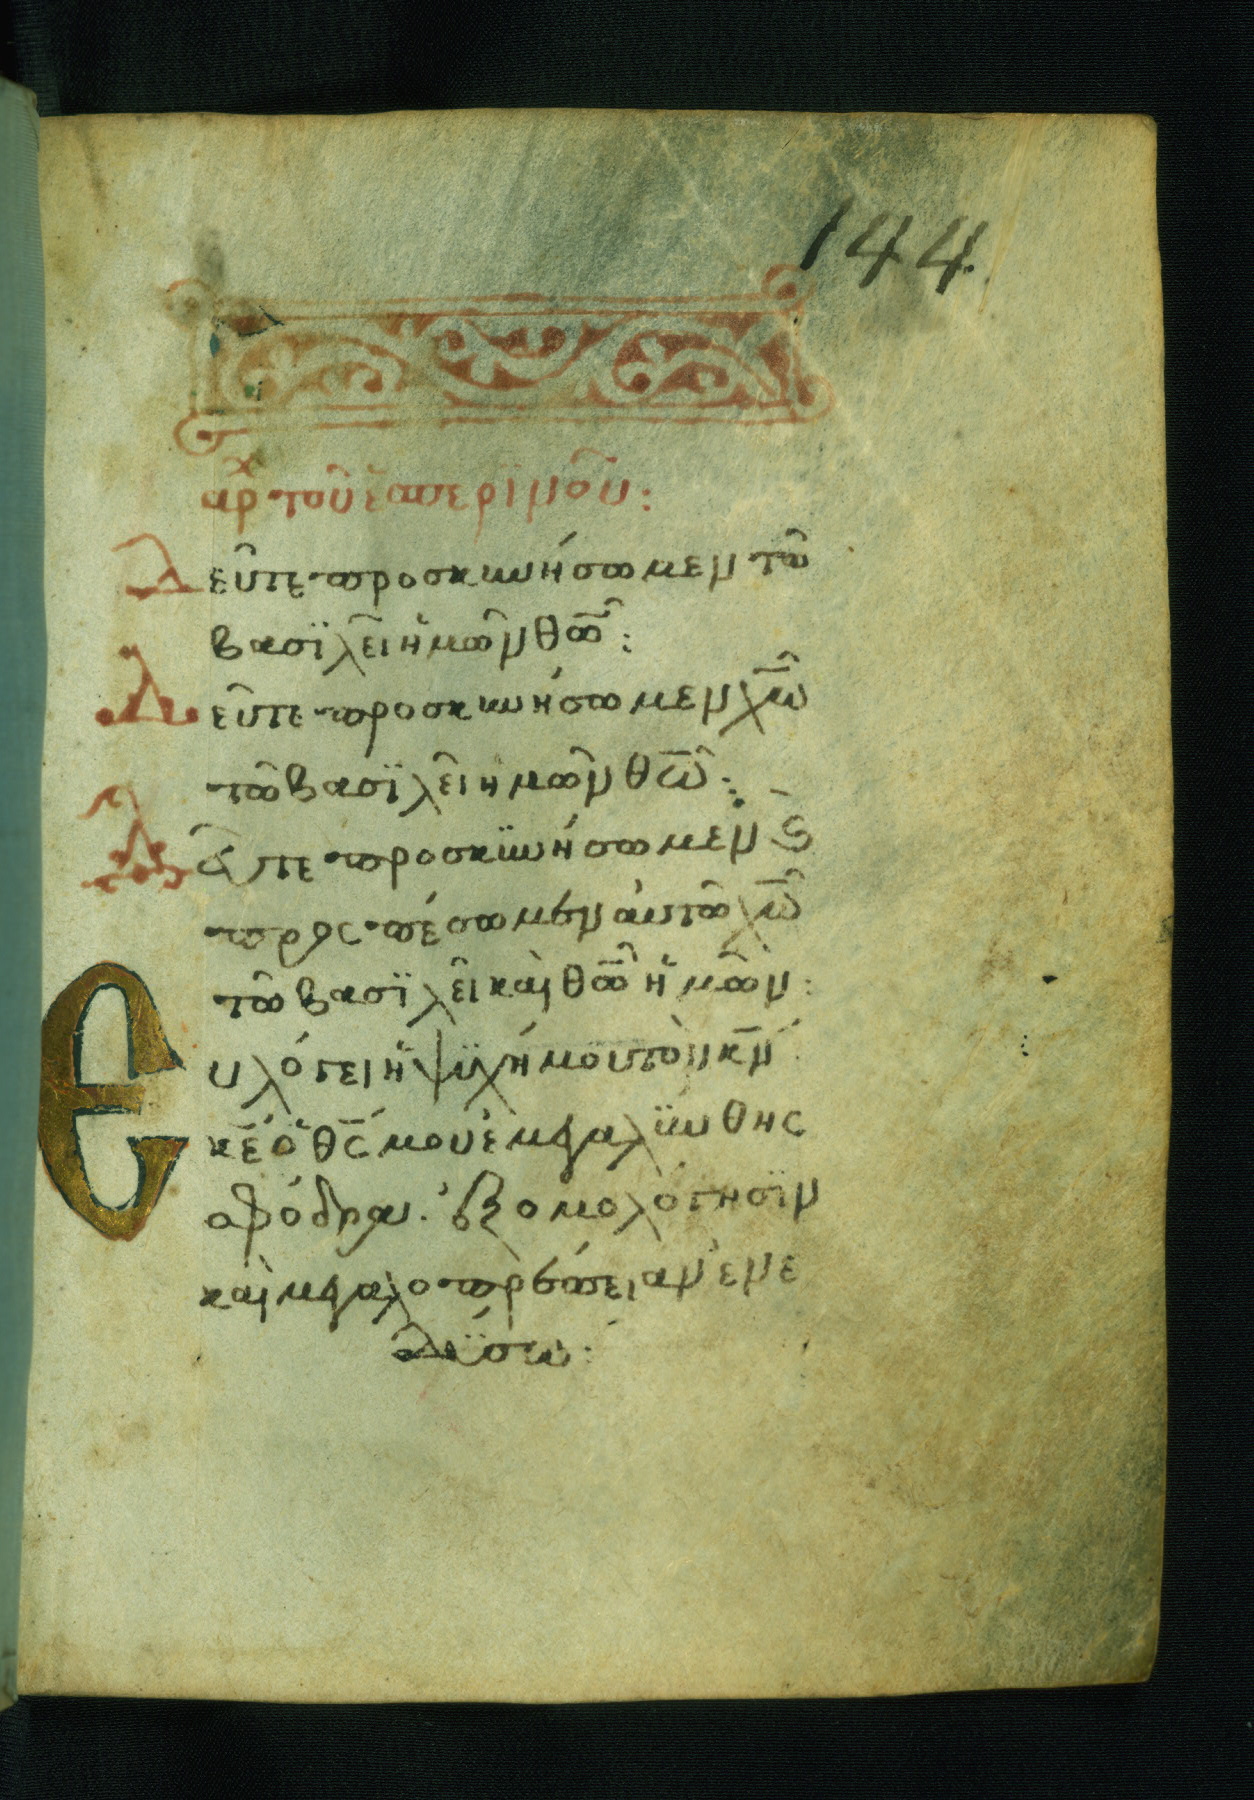 144.
αρχ τοῦ ἑσπερινοῦ:
Δεῦτε προσκυνήσωμεν τῶ
βασϊλεῖ ἡμῶν θῶ:
Δεῦτε προσκυνήσωμεν χῶ
τῶ βασϊλεῖ ἡμῶν θῶ:
Δεῦτε προσκϋνήσωμεν ϛ
προσπέσωμεν αὐτῶ χῶ
τῶ βασϊλεῖ καὶ θῶ ἡμῶν:
Ευλόγει ἡ ψϋχή μου τὸν κν
κε ὁ θς μου ἐμεγαλϋνθης
σφόδρα. ἐξομολόγησϊν
καὶ μεγαλοπρέπειαν ἐνε
δϋσω: